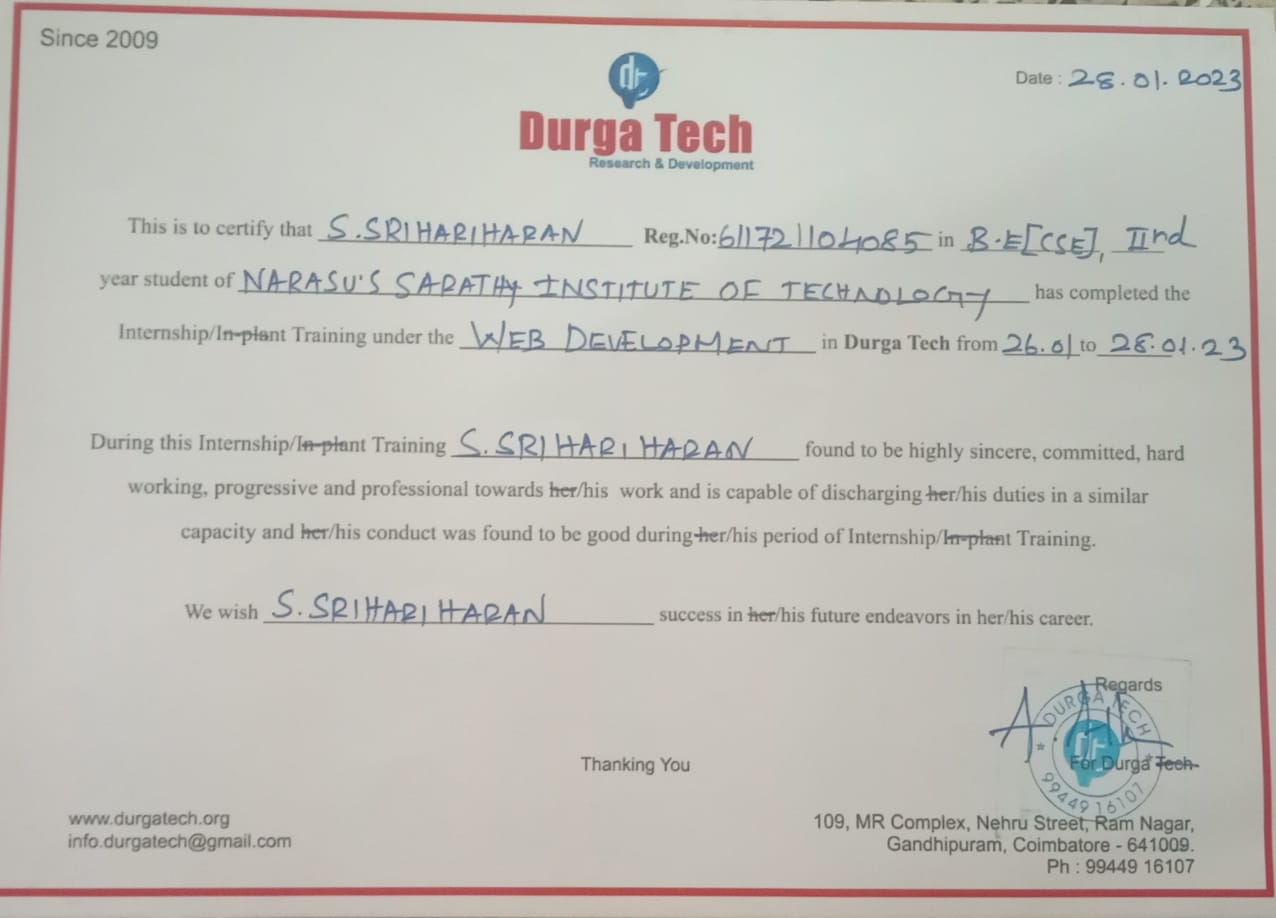 Since 2009
Date : 28.01.2023
dt
Durga Tech
Research & Development
This is to certify that S.SRIHARIHARAN Reg.No:611721104085 in B.E[CSE], IInd
year student of NARASU'S SARATHY INSTITUTE OF TECHNOLOGY has completed the
Internship/In-plant Training under the WEB DEVELOPMENT in Durga Tech from 26.01 to 28.01.23
During this Internship/In-plant Training S.SRIHARIHARAN found to be highly sincere, committed, hard
working, progressive and professional towards her/his work and is capable of discharging her/his duties in a similar
capacity and her/his conduct was found to be good during her/his period of Internship/In-plant Training.
We wish S.SRIHARIHARAN success in her/his future endeavors in her/his career.
Regards
DURGA TECH
dt
For Durga Tech
99449 16107
Thanking You
www.durgatech.org
info.durgatech@gmail.com
109, MR Complex, Nehru Street, Ram Nagar,
Gandhipuram, Coimbatore - 641009.
Ph : 99449 16107